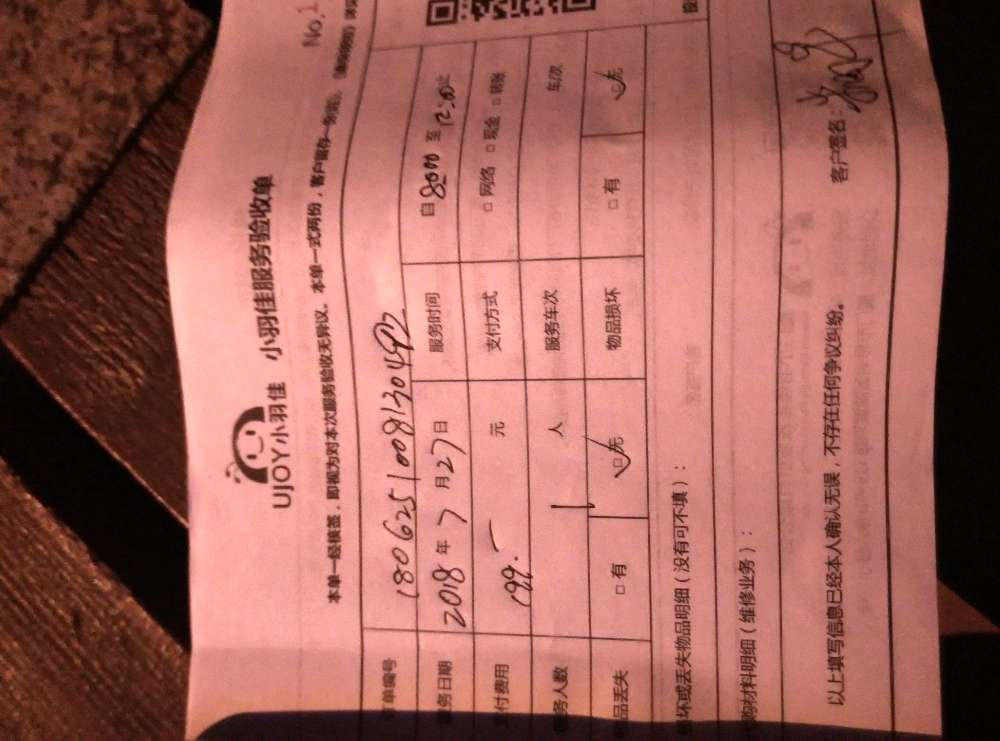 No.1
UJOY小羽佳 小羽佳服务验收单
本单一经核签，即视为对本次服务验收无异议。本单一式两份，客户留存一份
订单编号 180625100813049
服务日期 2018年7月27日 服务时间 自8:00至12:00止
支付费用 199.- 元 支付方式 □网络 □现金 □转账
服务人数 1 人 服务车次 车/次
物品丢失 □有 ☑无 物品损坏 □有 ☑无
坏或丢失物品明细（没有可不填）：
购材料明细（维修业务）：
以上填写信息已经本人确认无误，不存在任何争议纠纷。 客户签名：